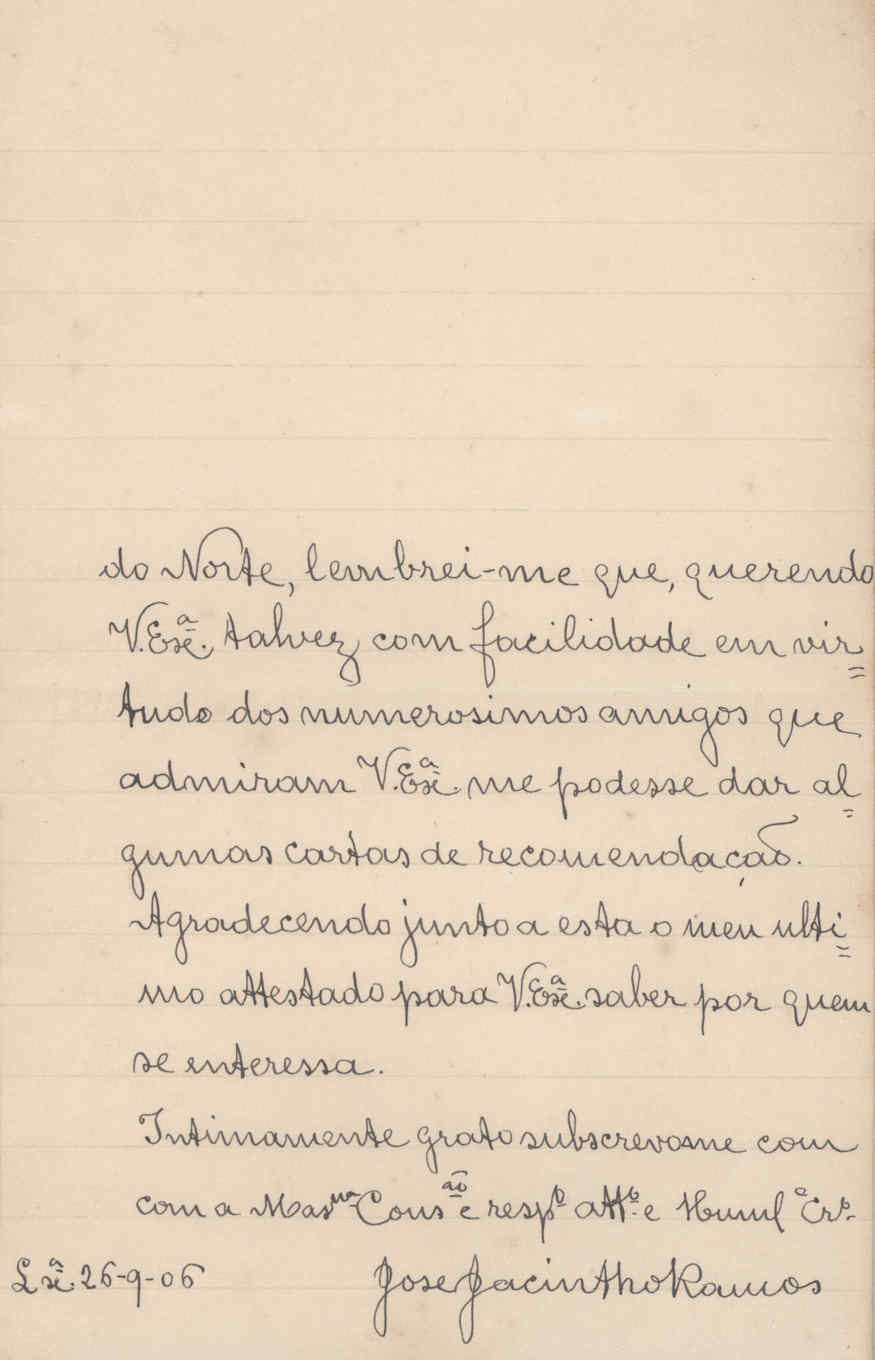 do Norte, lembrei-me que, querendo
V. Exª. talvez com facilidade em vir=
tude dos numerosimos amigos que
admiram V. Exª. me podesse dar al=
gumas cartas de recomendação.
Agradecendo junto a esta o meu ulti=
mo attestado para V. Exª. saber por quem
se interessa.
Intimamente grato subscrevo-me com
com a Mas.ma Cons.ão e resp.to att.to e Huml.e Cr.o
Lxª. 26-9-06 Jose Jacintho Ramos